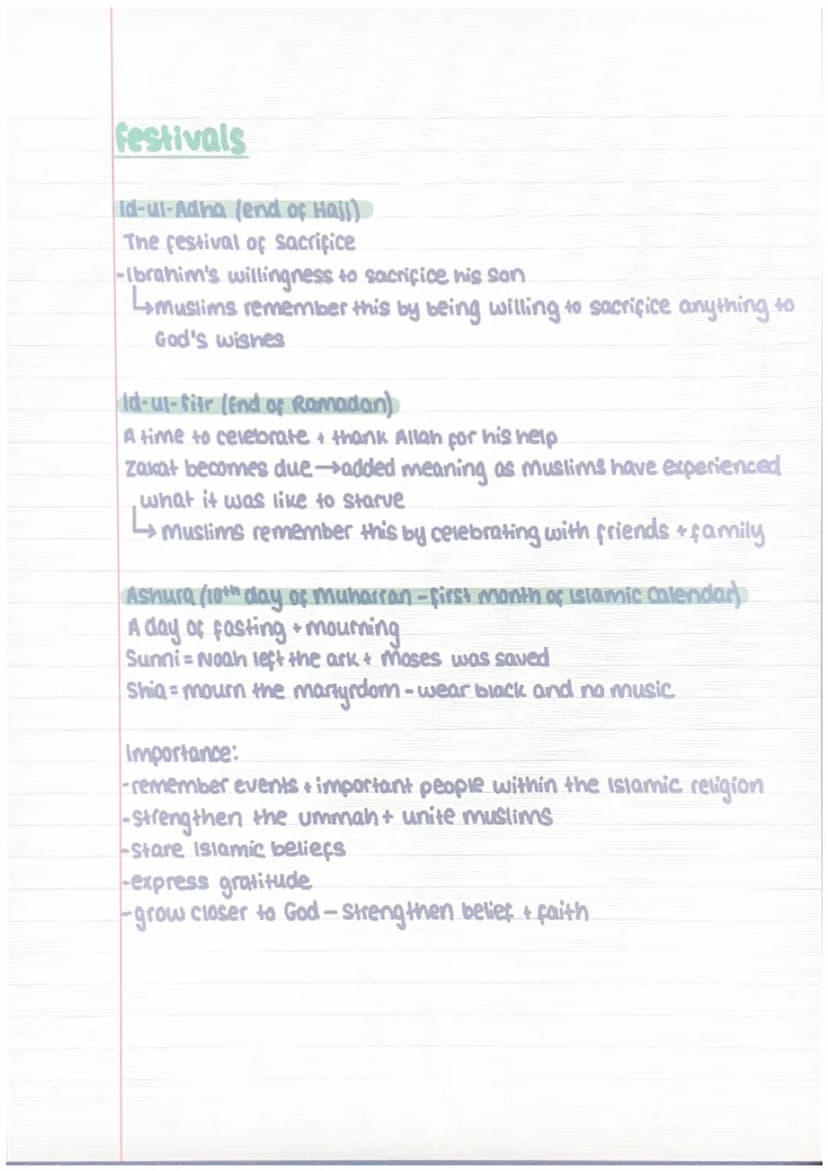 Festivals
Id-ul-Adha (end of Hajj)
The festival of sacrifice
-Ibrahim's willingness to sacrifice his son
↳Muslims remember this by being willing to sacrifice anything to
God's wishes
Id-ul-Fitr (End of Ramadan)
A time to celebrate + thank Allah for his help
Zakat becomes due→added meaning as Muslims have experienced
what it was like to starve
↳ Muslims remember this by celebrating with friends + family
Ashura (10th day of Muharran - first month of Islamic Calendar)
A day of fasting + mourning
Sunni = Noah left the ark + Moses was saved
Shia = mourn the martyrdom - wear black and no music
Importance:
-remember events + important people within the Islamic religion
-strengthen the ummah + unite muslims
-stare Islamic beliefs
-express gratitude
-grow closer to God - strengthen belief + faith